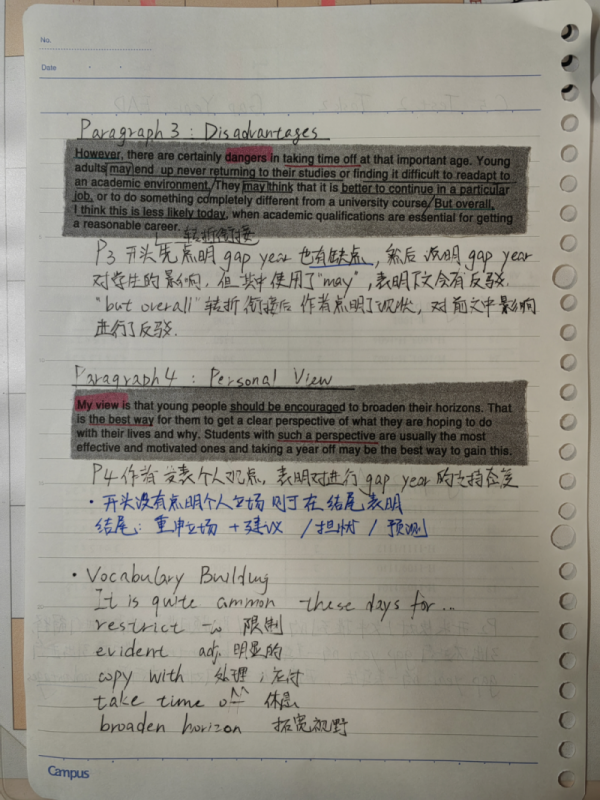 No.
Date
Paragraph 3 : Disadvantages
However, there are certainly dangers in taking time off at that important age. Young
adults may end up never returning to their studies or finding it difficult to readapt to
an academic environment. They may think that it is better to continue in a particular
job, or to do something completely different from a university course. But overall,
I think this is less likely today, when academic qualifications are essential for getting
a reasonable career.
转折衔接
P3 开头先点明 gap year 也有缺点, 然后说明 gap year
对学生的影响, 但其中使用了"may", 表明下文会有反驳.
"but overall" 转折衔接后 作者点明了现状, 对前文中影响
进行了反驳.
Paragraph 4 : Personal View
My view is that young people should be encouraged to broaden their horizons. That
is the best way for them to get a clear perspective of what they are hoping to do
with their lives and why. Students with such a perspective are usually the most
effective and motivated ones and taking a year off may be the best way to gain this.
P4 作者发表个人观点, 表明对进行 gap year 的支持态度
· 开头没有点明个人立场 则于在结尾表明
结尾: 重申立场 + 建议 / 担忧 / 预测
· Vocabulary Building
It is quite common these days for...
restrict 限制
evident adj. 明显的
copy with 处理 ; 应付
take time off 休息
broaden horizon 拓宽视野
Campus